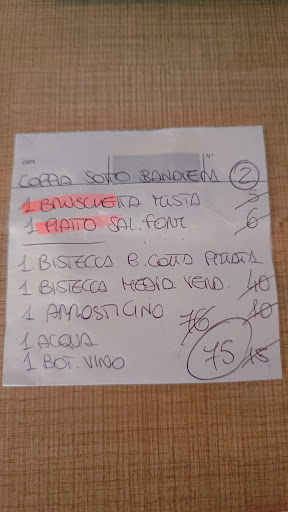 COPPIA SOTTO BANDIERA 2
1 BRUSCHETTA MISTA 5
1 PIATTO SAL. FORM 6
1 BISTECCA B. COTTA PATATA
1 BISTECCA MEDIA VERD. 40
1 ARROSTICINO 10
76
1 ACQUA
1 BOT. VINO 75 15